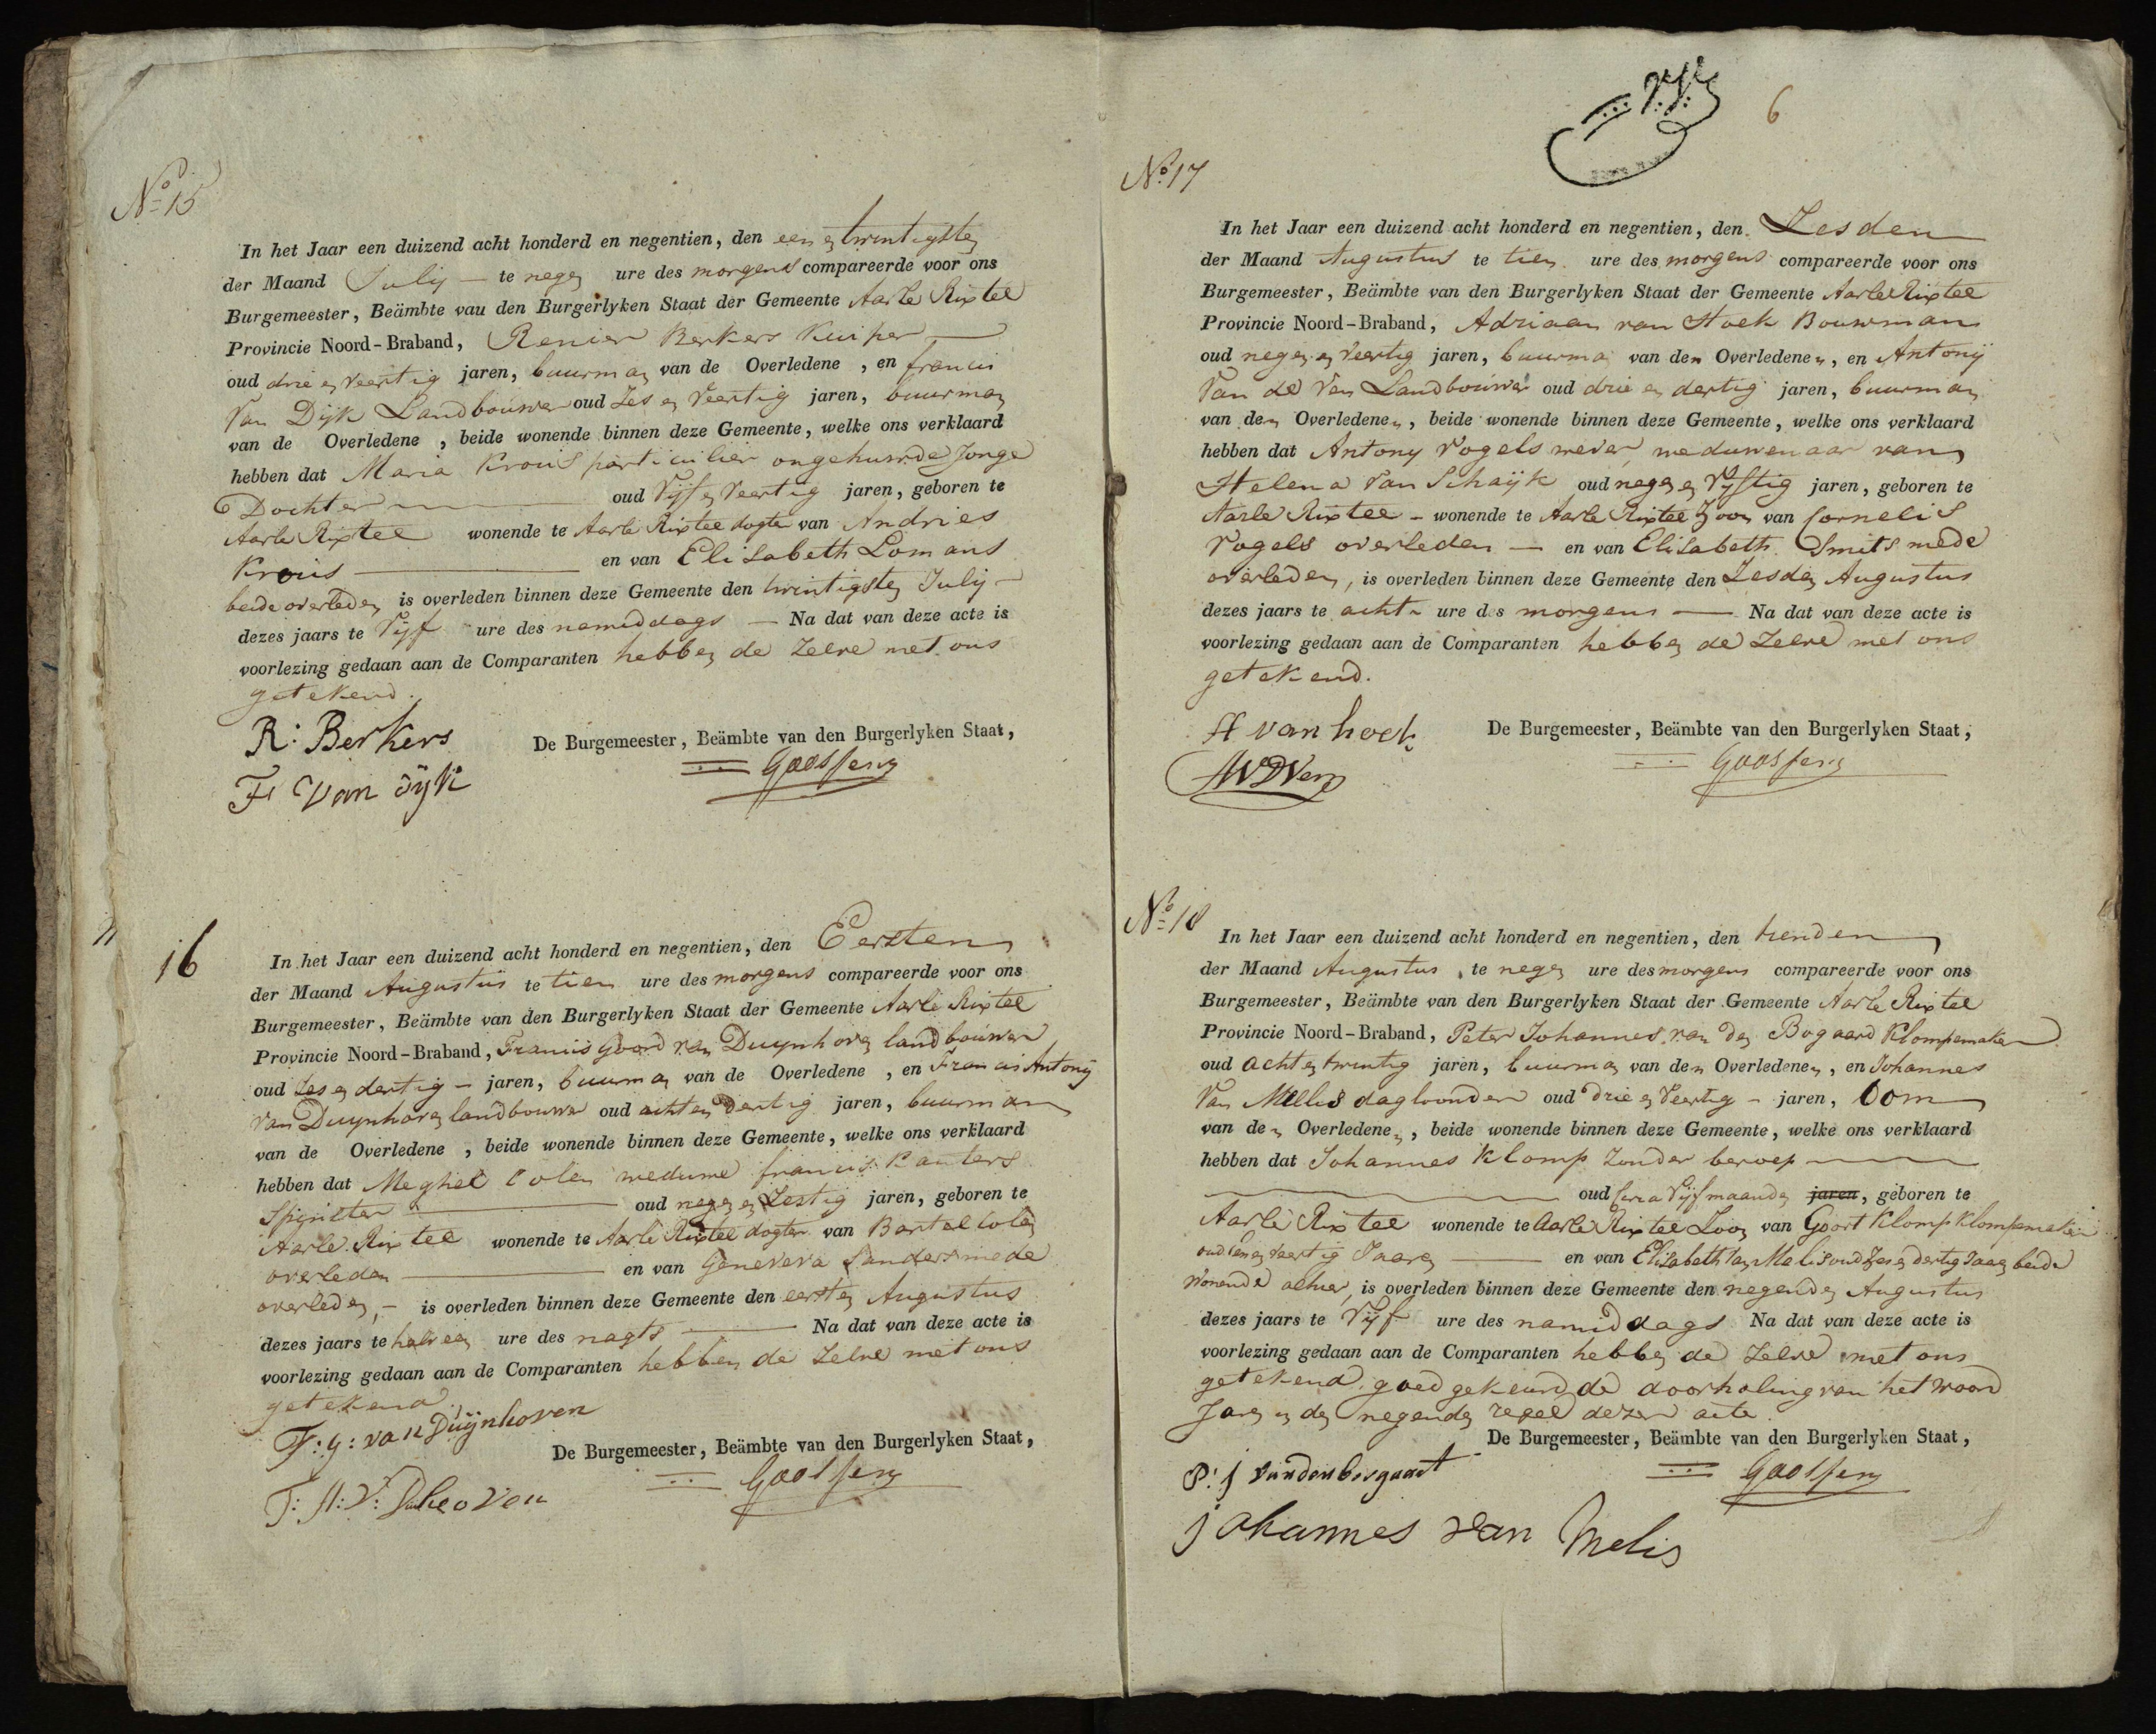 No 15
In het Jaar een duizend acht honderd en negentien, den een en twintigsten
der Maand Julij — te negen ure des morgens compareerde voor ons
Burgemeester, Beämbte vau den Burgerlyken Staat der Gemeente Aarle Rixtel
Provincie Noord-Braband, Renier Berkers Kuiper
oud drie en veertig jaren, buurman van de Overledene , en francis
Van Dijk Landbouwer oud Zes en Veertig jaren, buurman
van de Overledene , beide wonende binnen deze Gemeente, welke ons verklaard
hebben dat Maria Krous particulier ongehuwde Jonge
Dochter oud Vijf en Veertig jaren, geboren te
Aarle Rixtel wonende te Aarle Rixtel dogter van Andries
Krouis en van Elisabeth Lomans
beide overleden is overleden binnen deze Gemeente den twintigsten Julij —
dezes jaars te Vijf ure des namiddags — Na dat van deze acte is
voorlezing gedaan aan de Comparanten hebben de Zelve met ons
getekend.
R: Berkers
De Burgemeester, Beämbte van den Burgerlyken Staat,
Goossens
F Van Dyk
16
In het Jaar een duizend acht honderd en negentien, den Eersten
der Maand Augustus te tien ure des morgens compareerde voor ons
Burgemeester, Beämbte van den Burgerlyken Staat der Gemeente Aarle Rixtel
Provincie Noord-Braband, Francis Goord van Duynhoven landbouwer
oud Zes en dertig — jaren, buurman van de Overledene , en Francis Antonij
van Duynhoven landbouwer oud acht en dertig jaren, buurman
van de Overledene , beide wonende binnen deze Gemeente, welke ons verklaard
hebben dat Meghel Colen weduwe francis Kanters
Spinster oud negen en Zestig jaren, geboren te
Aarle Rixtel wonende te Aarle Rixtel dogter van Bartel Colen
overleden en van Geneveva Sanders mede
overleden, — is overleden binnen deze Gemeente den eersten Augustus
dezes jaars te half een ure des nagts Na dat van deze acte is
voorlezing gedaan aan de Comparanten hebben de Zelve met ons
getekend
F: G: van Duijnhoven
De Burgemeester, Beämbte van den Burgerlyken Staat,
Goossens
F: A: V:
6
No 17
In het Jaar een duizend acht honderd en negentien, den Zesden
der Maand Augustus te tien ure des morgens compareerde voor ons
Burgemeester, Beämbte van den Burgerlyken Staat der Gemeente Aarle Rixtel
Provincie Noord-Braband, Adriaan van Hoek Bouwman
oud negen en Veertig jaren, buurman van den Overledenen, en Antonij
Van de Ven Landbouwer oud drie en dertig jaren, buurman
van den Overledenen, beide wonende binnen deze Gemeente, welke ons verklaard
hebben dat Antony Vogels wever, weduwenaar van
Helena Van Schaijk oud negen en Vyftig jaren, geboren te
Aarle Rixtel — wonende te Aarle Rixtel Zoon van Cornelis
Vogels overleden — en van Elisabeth Smits mede
overleden, is overleden binnen deze Gemeente den Zesden Augustus
dezes jaars te acht ure des morgens — Na dat van deze acte is
voorlezing gedaan aan de Comparanten hebben de Zelve met ons
getekend.
A van hoek
De Burgemeester, Beämbte van den Burgerlyken Staat,
Goossens
AVDVen
No 18
In het Jaar een duizend acht honderd en negentien, den tienden
der Maand Augustus te negen ure des morgens compareerde voor ons
Burgemeester, Beämbte van den Burgerlyken Staat der Gemeente Aarle Rixtel
Provincie Noord-Braband, Peter Johannes van den Bogaard Klompemaker
oud acht en twintig jaren, buurman van den Overledenen, en Johannes
Van Mellis dagloonder oud drie en Veertig — jaren, Oom
van den Overledenen, beide wonende binnen deze Gemeente, welke ons verklaard
hebben dat Johannes Klomp Zonder beroep
oud Circa Vijf maanden jaren, geboren te
Aarle Rixtel wonende te Aarle Rixtel Zoon van Goort Klomp Klompmaker
oud en veertig Jaaren en van Elisabeth Van Melis oud Zes en dertig Jaaren beide
wonende alhier, is overleden binnen deze Gemeente den negenden Augustus
dezes jaars te Vijf ure des namiddags Na dat van deze acte is
voorlezing gedaan aan de Comparanten hebben de Zelve met ons
getekend goed gekeurd de doorhaling van het woord
Jaren in den negenden regel dezer acte
De Burgemeester, Beämbte van den Burgerlyken Staat,
P: J vanden bogaart
Goossens
johannes van Melis